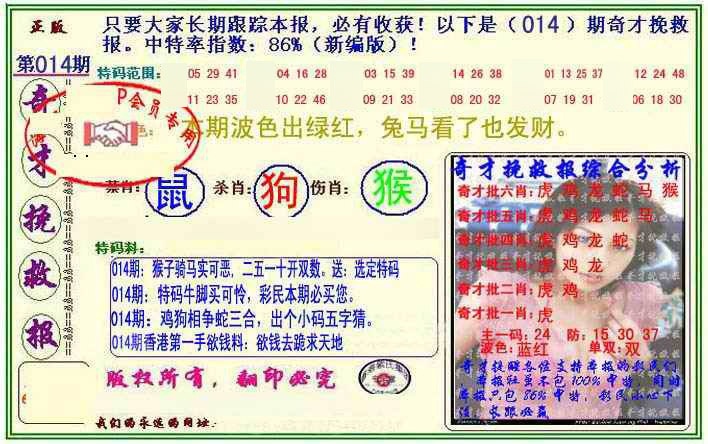 正版
只要大家长期跟踪本报，必有收获！以下是（014）期奇才挽救
报。中特率指数：86%（新编版）！
第014期
奇才挽救报
特码范围：
05 29 41 04 16 28 03 15 39 14 26 38 01 13 25 37 12 24 48
11 23 35 10 22 46 09 21 33 08 20 32 07 19 31 06 18 30
P会员专用
本期波色出绿红，兔马看了也发财。
禁肖：鼠 杀肖：狗 伤肖：猴
特码料：
014期：猴子骑马实可恶，二五一十开双数。送：选定特码
014期：特码牛脚买可怜，彩民本期必买您。
014期：鸡狗相争蛇三合，出个小码五字猜。
014期香港第一手欲钱料：欲钱去跪求天地
版权所有，翻印必究
我们的永远的网址：
奇才挽救报综合分析
奇才批六肖：虎 鸡 龙 蛇 马 猴
奇才批五肖：虎 鸡 龙 蛇 马
奇才批四肖：虎 鸡 龙 蛇
奇才批三肖：虎 鸡 龙
奇才批二肖：虎 鸡
奇才批一肖：虎
主一码：24 防：15 30 37
波色：蓝红 单双：双
奇才挽救各位支持本报的彩民们
本报在虽不包100%中特，同时
本报只包86%中特，彩民小心下
注，长跟必赢